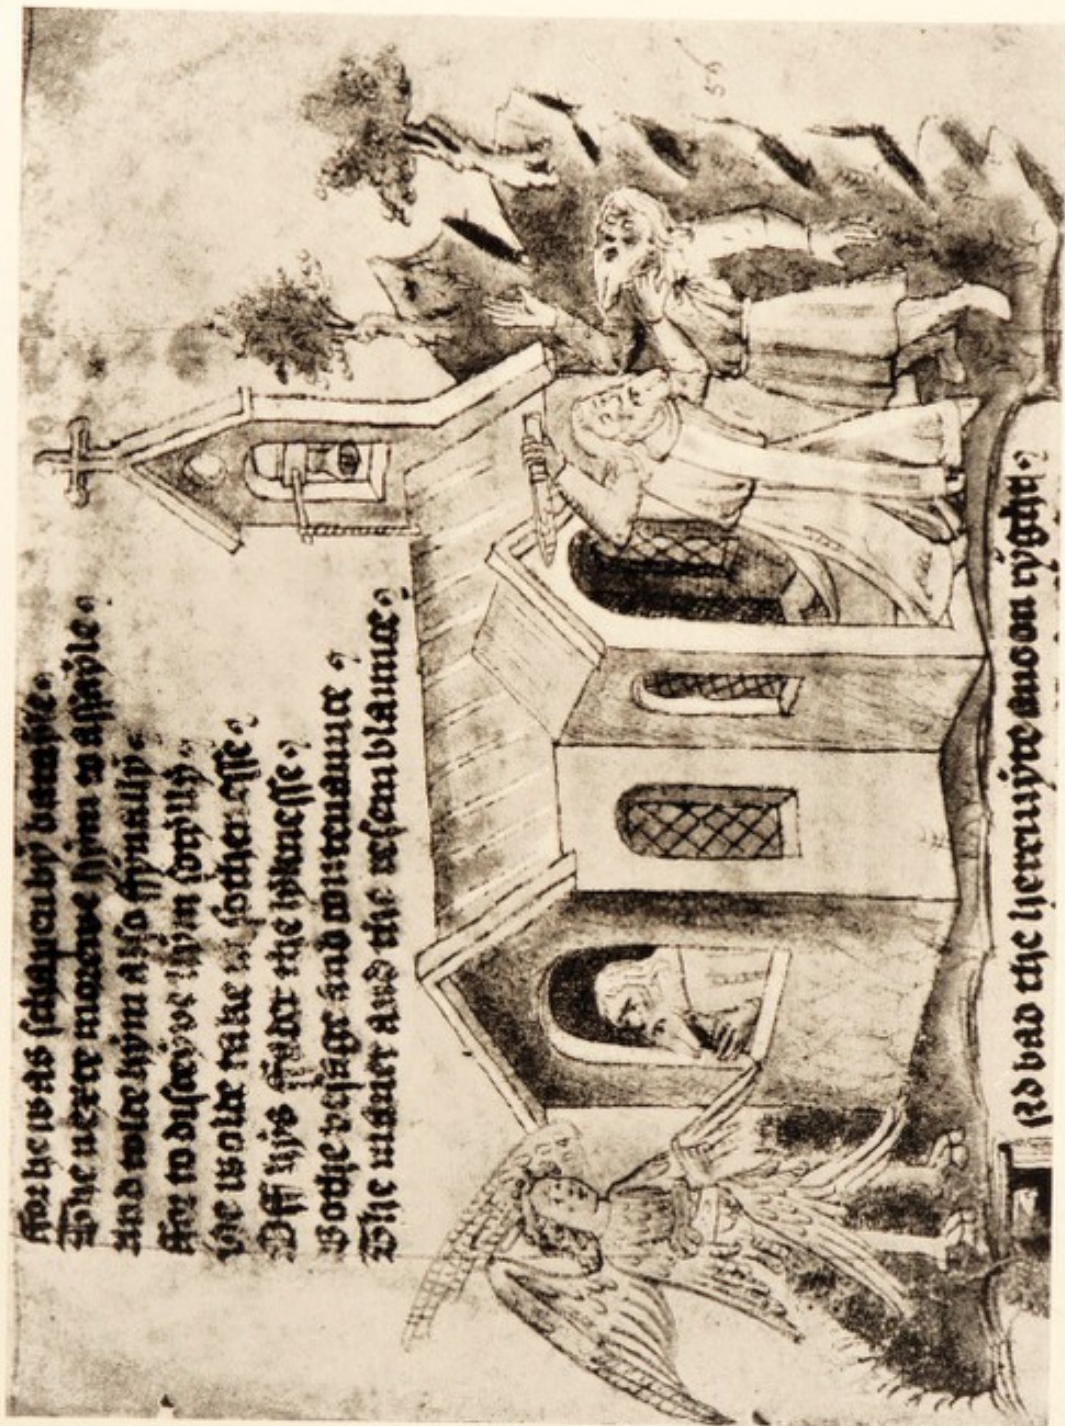 For he was schapen by bataylle
The nexte morewe hym to assayle
And tolde hym also ffynally
For to disceyve hym sotylly
He wolde take in sothenesse
Off hys ffader the lyknesse
Bothe vesage and contenaunce
The maner and the resemblaunce
And bad the heremyte anoon ryght